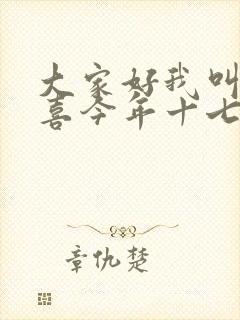 大家好我叫
喜今年十七
章仇楚